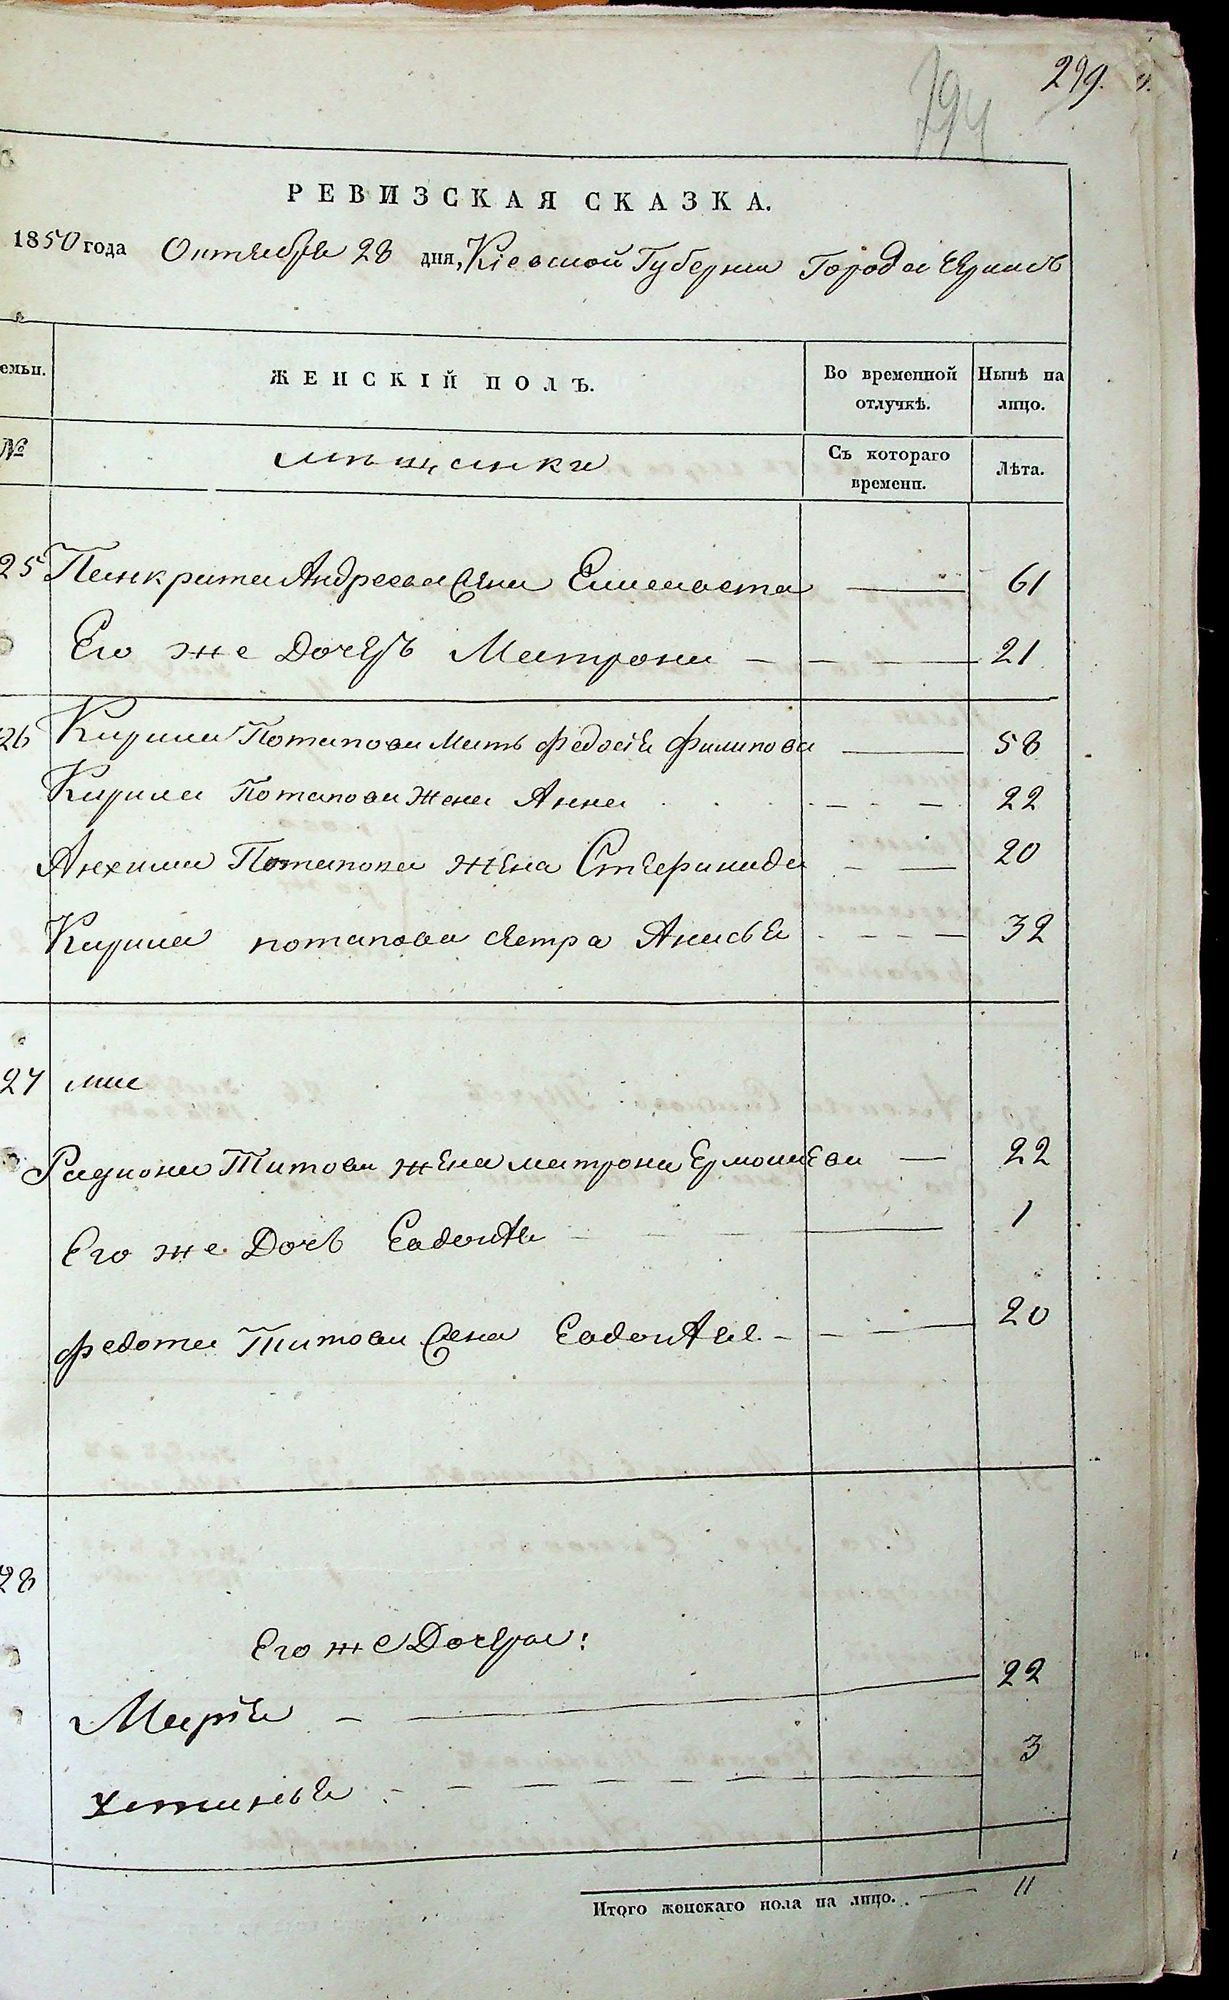 299.
794
РЕВИЗСКАЯ СКАЗКА.
1850 года Октября 28 дня, Кіевской Губерніи Города
емьи. ЖЕНСКІЙ ПОЛЪ. Во временной отлучкѣ. Нынѣ на лицо.
№ мѣщанки Съ котораго времени. Лѣта.
25 Панкрата Андреева жена 61
Его же дочерь Матрона 21
26 Кирила Потапова мать Федосія Филипова 58
Кирила Потапова жена Анна 22
Потапова жена 20
Кирила потапова сестра Анисья 32
27
Радиона Титова жена матрона 22
Его же Дочь Евдокія 1
Федота Титова жена Евдокія 20
28
Его же Дочери:
Марія 22
Устинья 3
Итого женскаго пола на лицо. 11